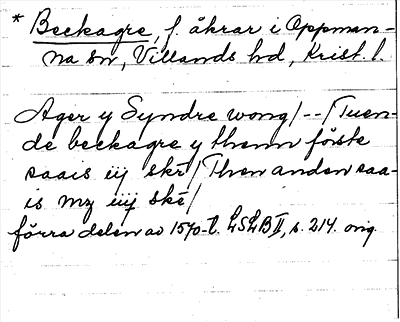 * Beckagre, f. åkrar i Oppman-
na sn, Villands hd, Krist. l.
Ager y Syndre wong/--/Tuen-
de beckagre y thenn förste
saais iij skr/Then anden saa-
is mz iiij ske/
förra delen av 1570-t. LSLB II, s. 214. orig